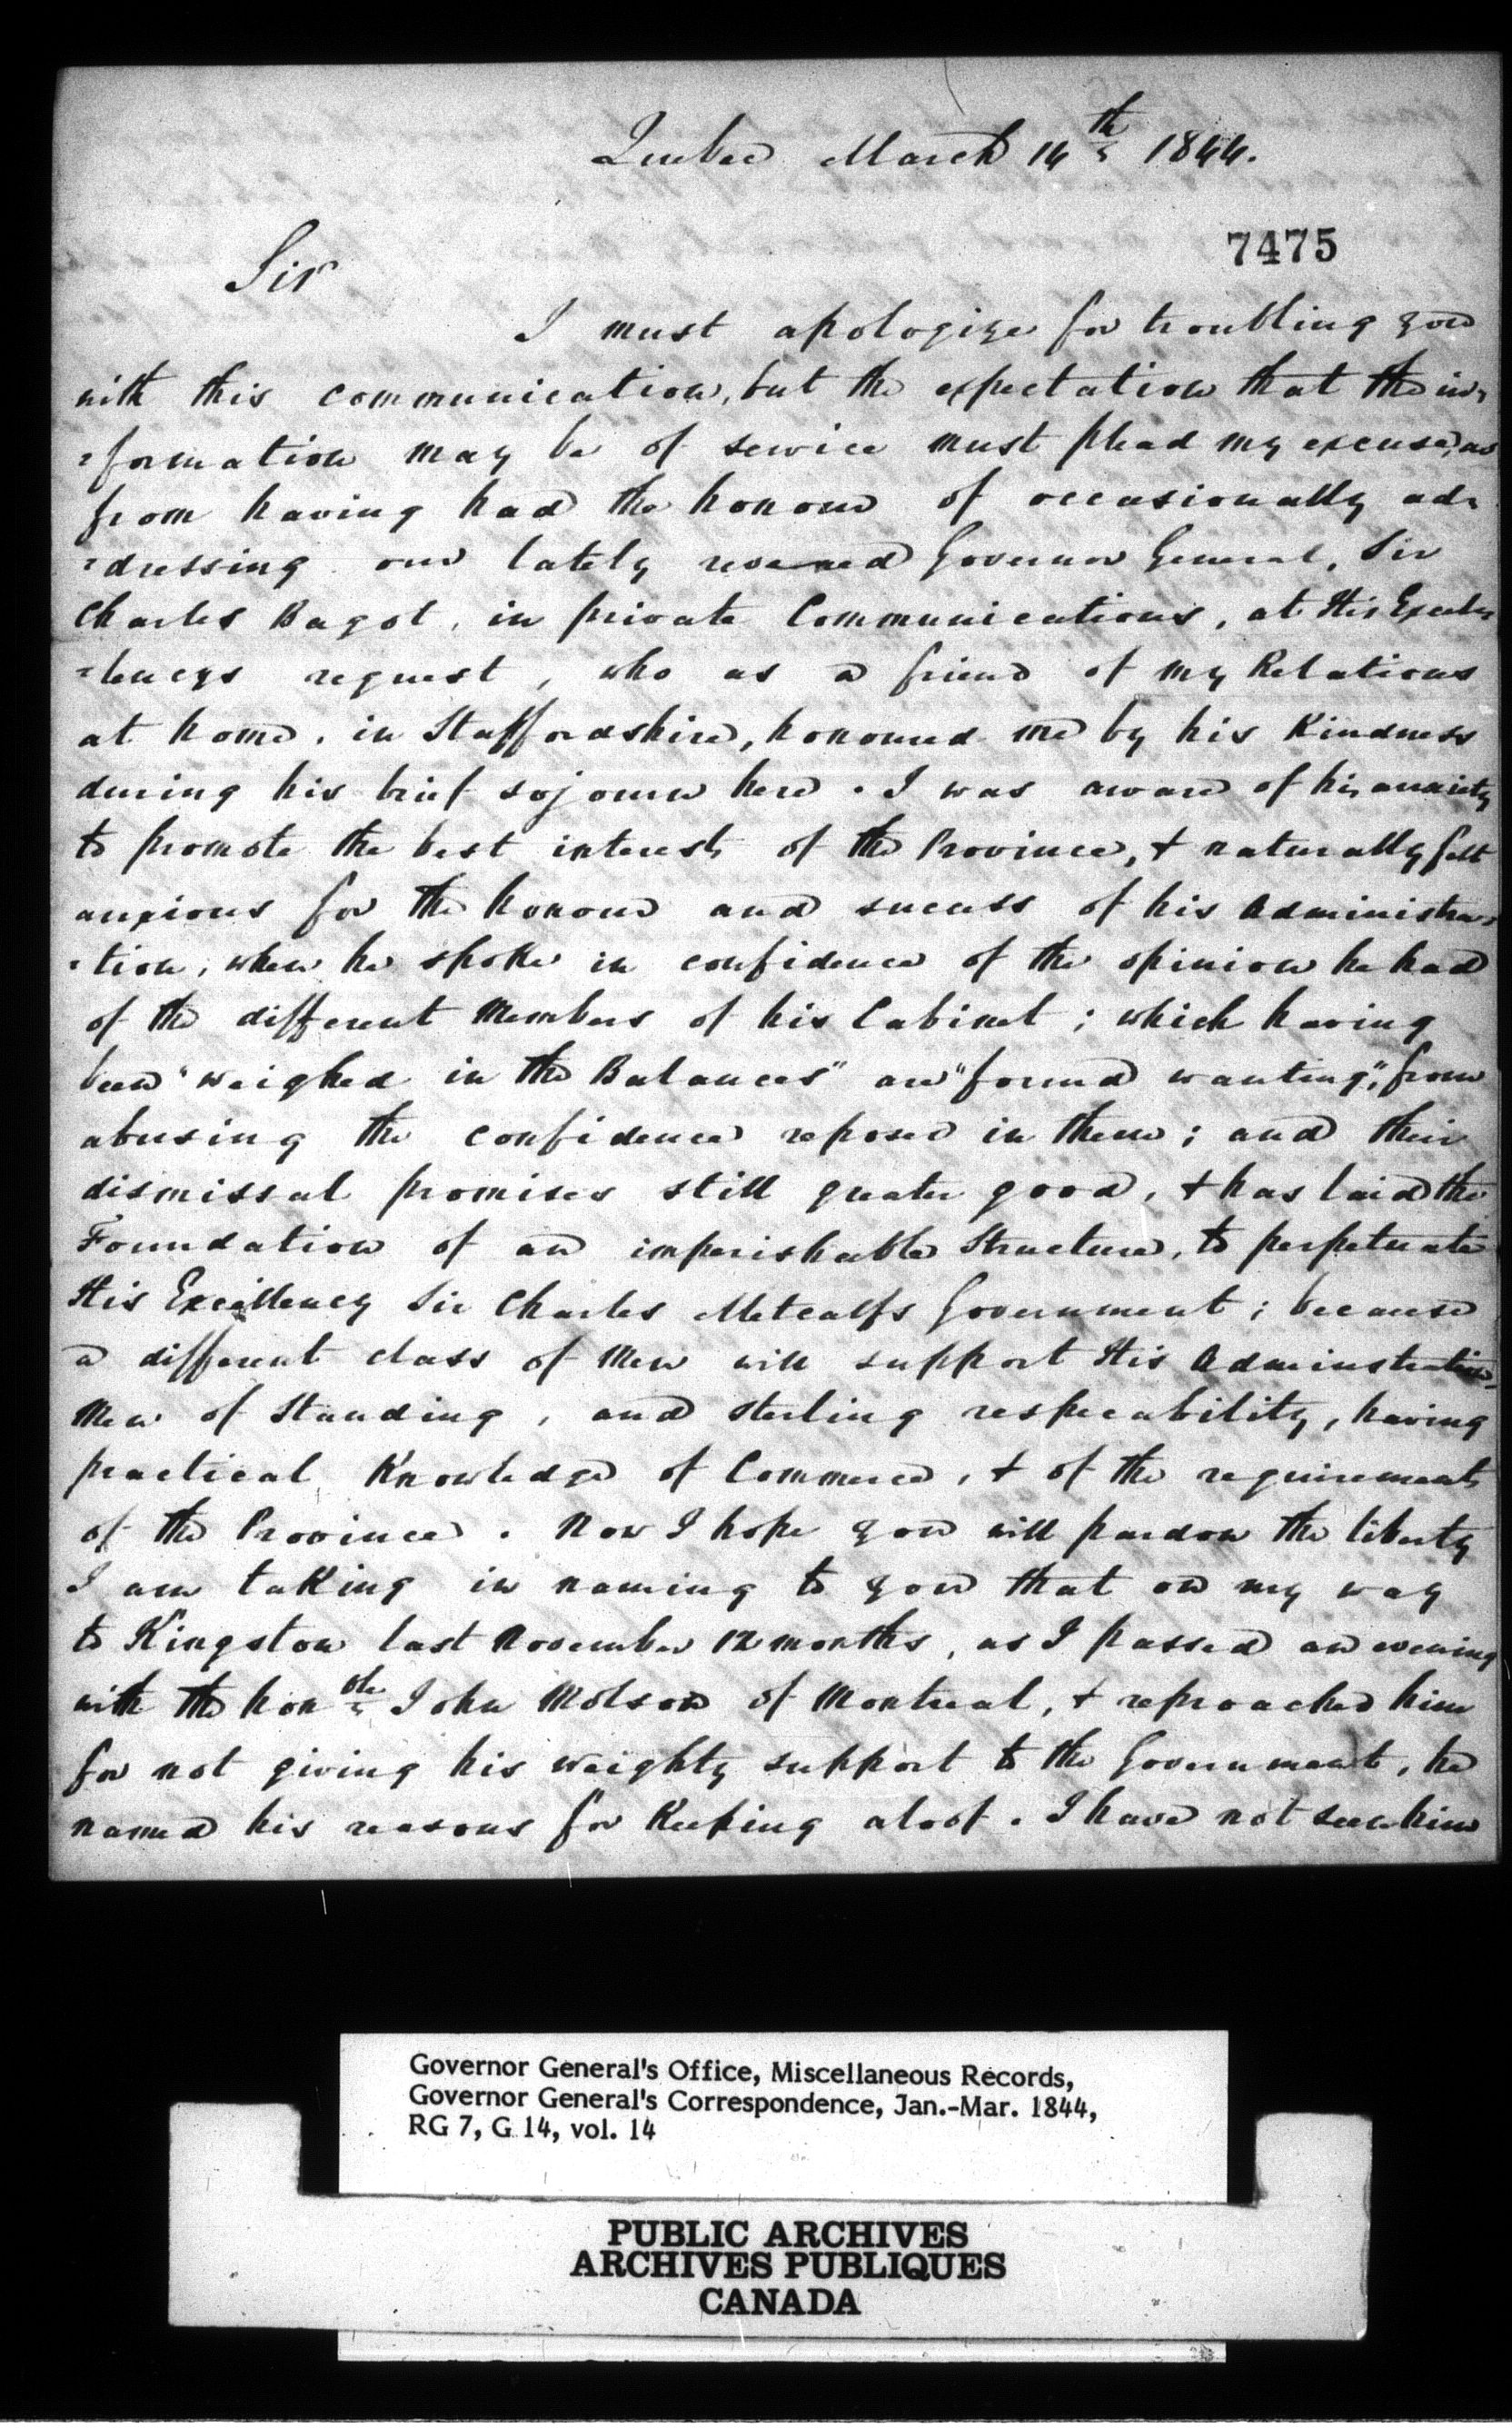 Quebec March 14th 1844.
7475
Sir
I must apologize for troubling you
with this communication, but the expectation that the in=
=formation may be of service must plead my excuse, as
from having had the honour of occasionally ad=
=dressing our lately revered Governor General, Sir
Charles Bagot, in private Communications, at His Excel=
=lencys request, who as a friend of my Relations
at home, in Staffordshire, honoured me by his Kindness
during his brief sojourn here. I was aware of his anxiety
to promote the best interests of the Province, & naturally felt
anxious for the honour and success of his Administra=
=tion, when he spoke in confidence of the opinion he had
of the different Members of his Cabinet; which having
been "weighed in the Balances" are "found wanting", from
abusing the confidence reposed in them; and their
dismissal promises still greater good, & has laid the
Foundation of an imperishable Structure, to perpetuate
His Excellency Sir Charles Metcalfs Government; because
a different class of Men will support His Adminstration,
Men of Standing, and sterling respecability, having
practical Knowledge of Commerce, & of the requirements
of the Province. Now I hope you will pardon the liberty
I am taking in naming to you that on my way
to Kingston last November 12 months, as I passed an evening
with the honble John Molson of Montreal, & reproached him
for not giving his weighty support to the Government, he
named his reasons for Keeping aloof. I have not seen him
Governor General's Office, Miscellaneous Records,
Governor General's Correspondence, Jan.-Mar. 1844,
RG 7, G 14, vol. 14
PUBLIC ARCHIVES
ARCHIVES PUBLIQUES
CANADA